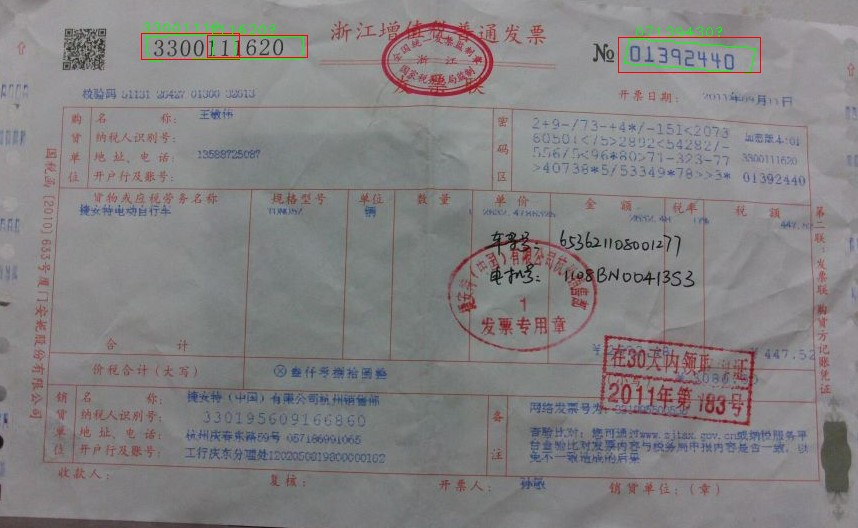 浙江增值税普通发票
3300111620
№ 01392440
全国统一发票监制章
浙江
国家税务局监制
发票联
校验码 51131 26427 01300 32613
开票日期: 2011年09月11日
购货单位
名称: 王敏伟
纳税人识别号:
地址、电话: 13588725087
开户行及账号:
密码区
2+9-/73-+4*/-151<2073
60501</5>2892<54282/-
556/5<96*80>71-323-77
>40738*5/53349*78>>3*
加密版本:01
3300111620
01392440
货物或应税劳务名称 规格型号 单位 数量 单价 金额 税率 税额
捷安特电动自行车 辆 1 447.52
车架号: 653621108001277
电机号: 1108BN00413S3
捷安特(中国)有限公司杭州销售部
1
发票专用章
合计 447.52
价税合计(大写) ⊗叁仟零捌拾圆整
在30天内领取认证
2011年第183号
销货单位
名称: 捷安特(中国)有限公司杭州销售部
纳税人识别号: 330195609166860
地址、电话: 杭州庆春东路59号 057186991065
开户行及账号: 工行庆东分理处1202050819800000162
备注
网络发票号为:
查验比对:您可通过www.zjtax.gov.cn或纳税服务平
台查验比对发票内容与税务局申报内容是否一致,以
免不一致造成的后果
收款人: 复核: 开票人: 孙敏 销货单位:(章)
国税函[2010]633号厦门安妮股份有限公司
第二联:发票联 购货方记账凭证